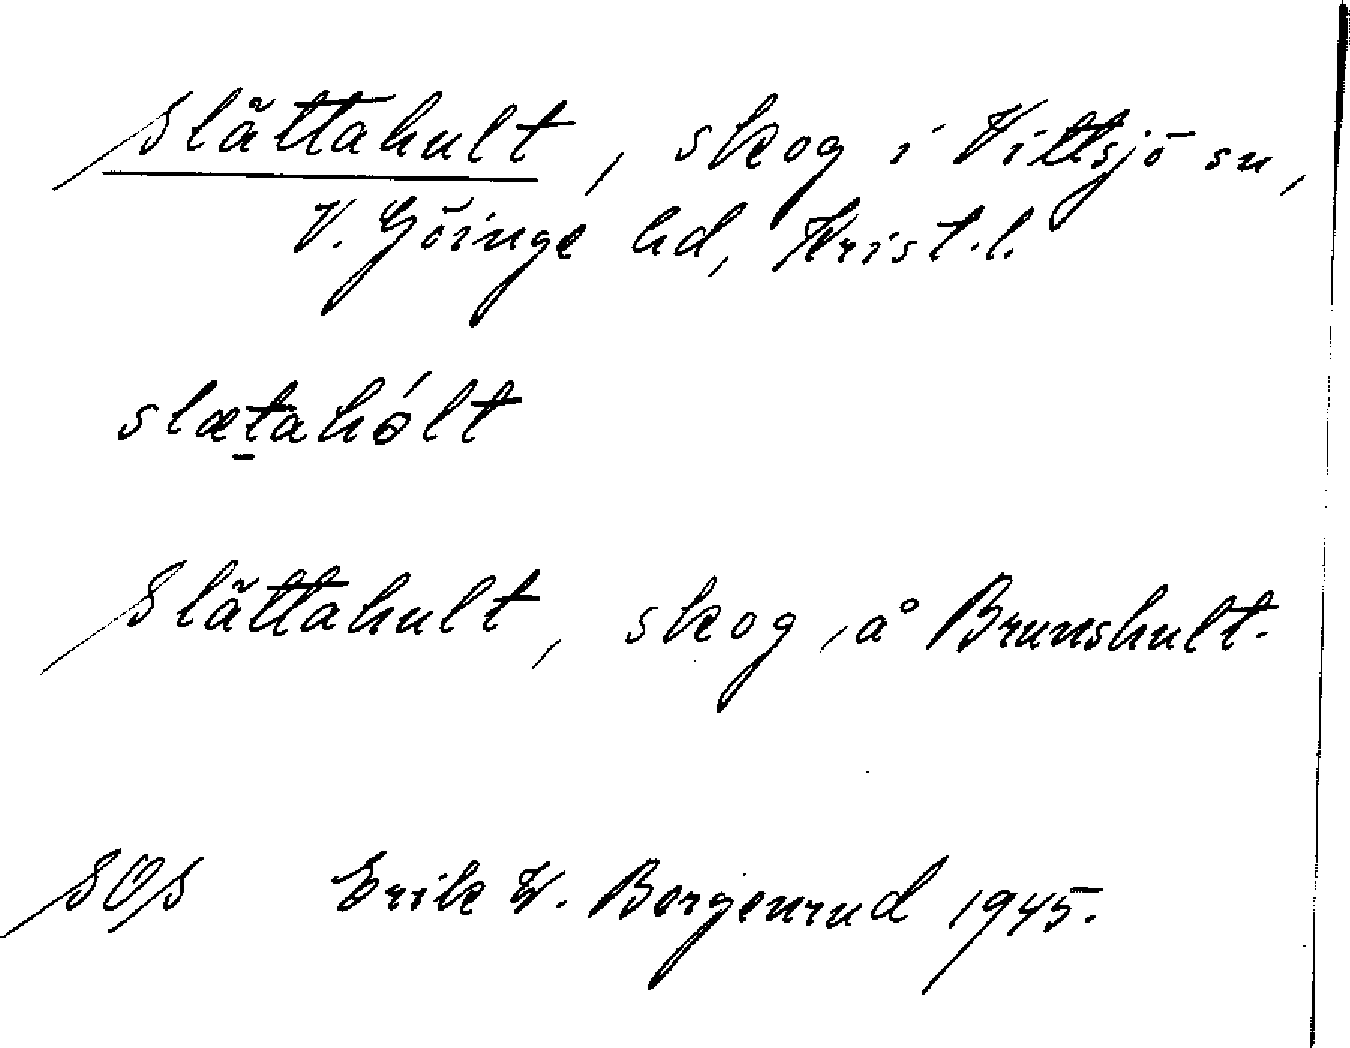 Slättahult, skog i Vittsjö sn,
V. Göinge hd, Krist.l.
slætahólt
Slättahult, skog, å Brunshult.
SOS Erik W. Borgenrud 1945.